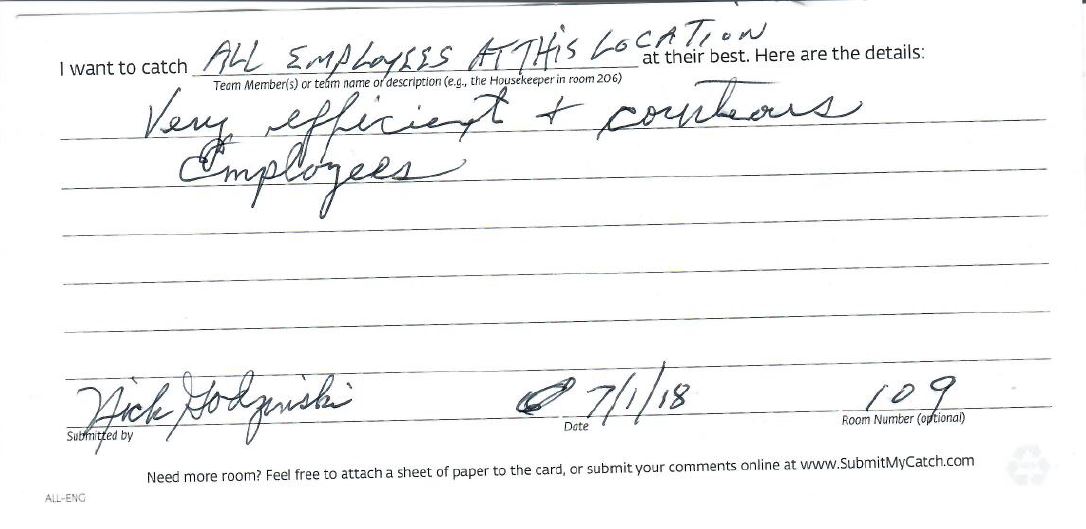 I want to catch ALL EMPLOYEES AT THIS LOCATION at their best. Here are the details:
Team Member(s) or team name or description (e.g., the Housekeeper in room 206)
Very efficient + courteous
Employees
Nick 7/1/18 109
Submitted by Date Room Number (optional)
Need more room? Feel free to attach a sheet of paper to the card, or submit your comments online at www.SubmitMyCatch.com
ALL-ENG